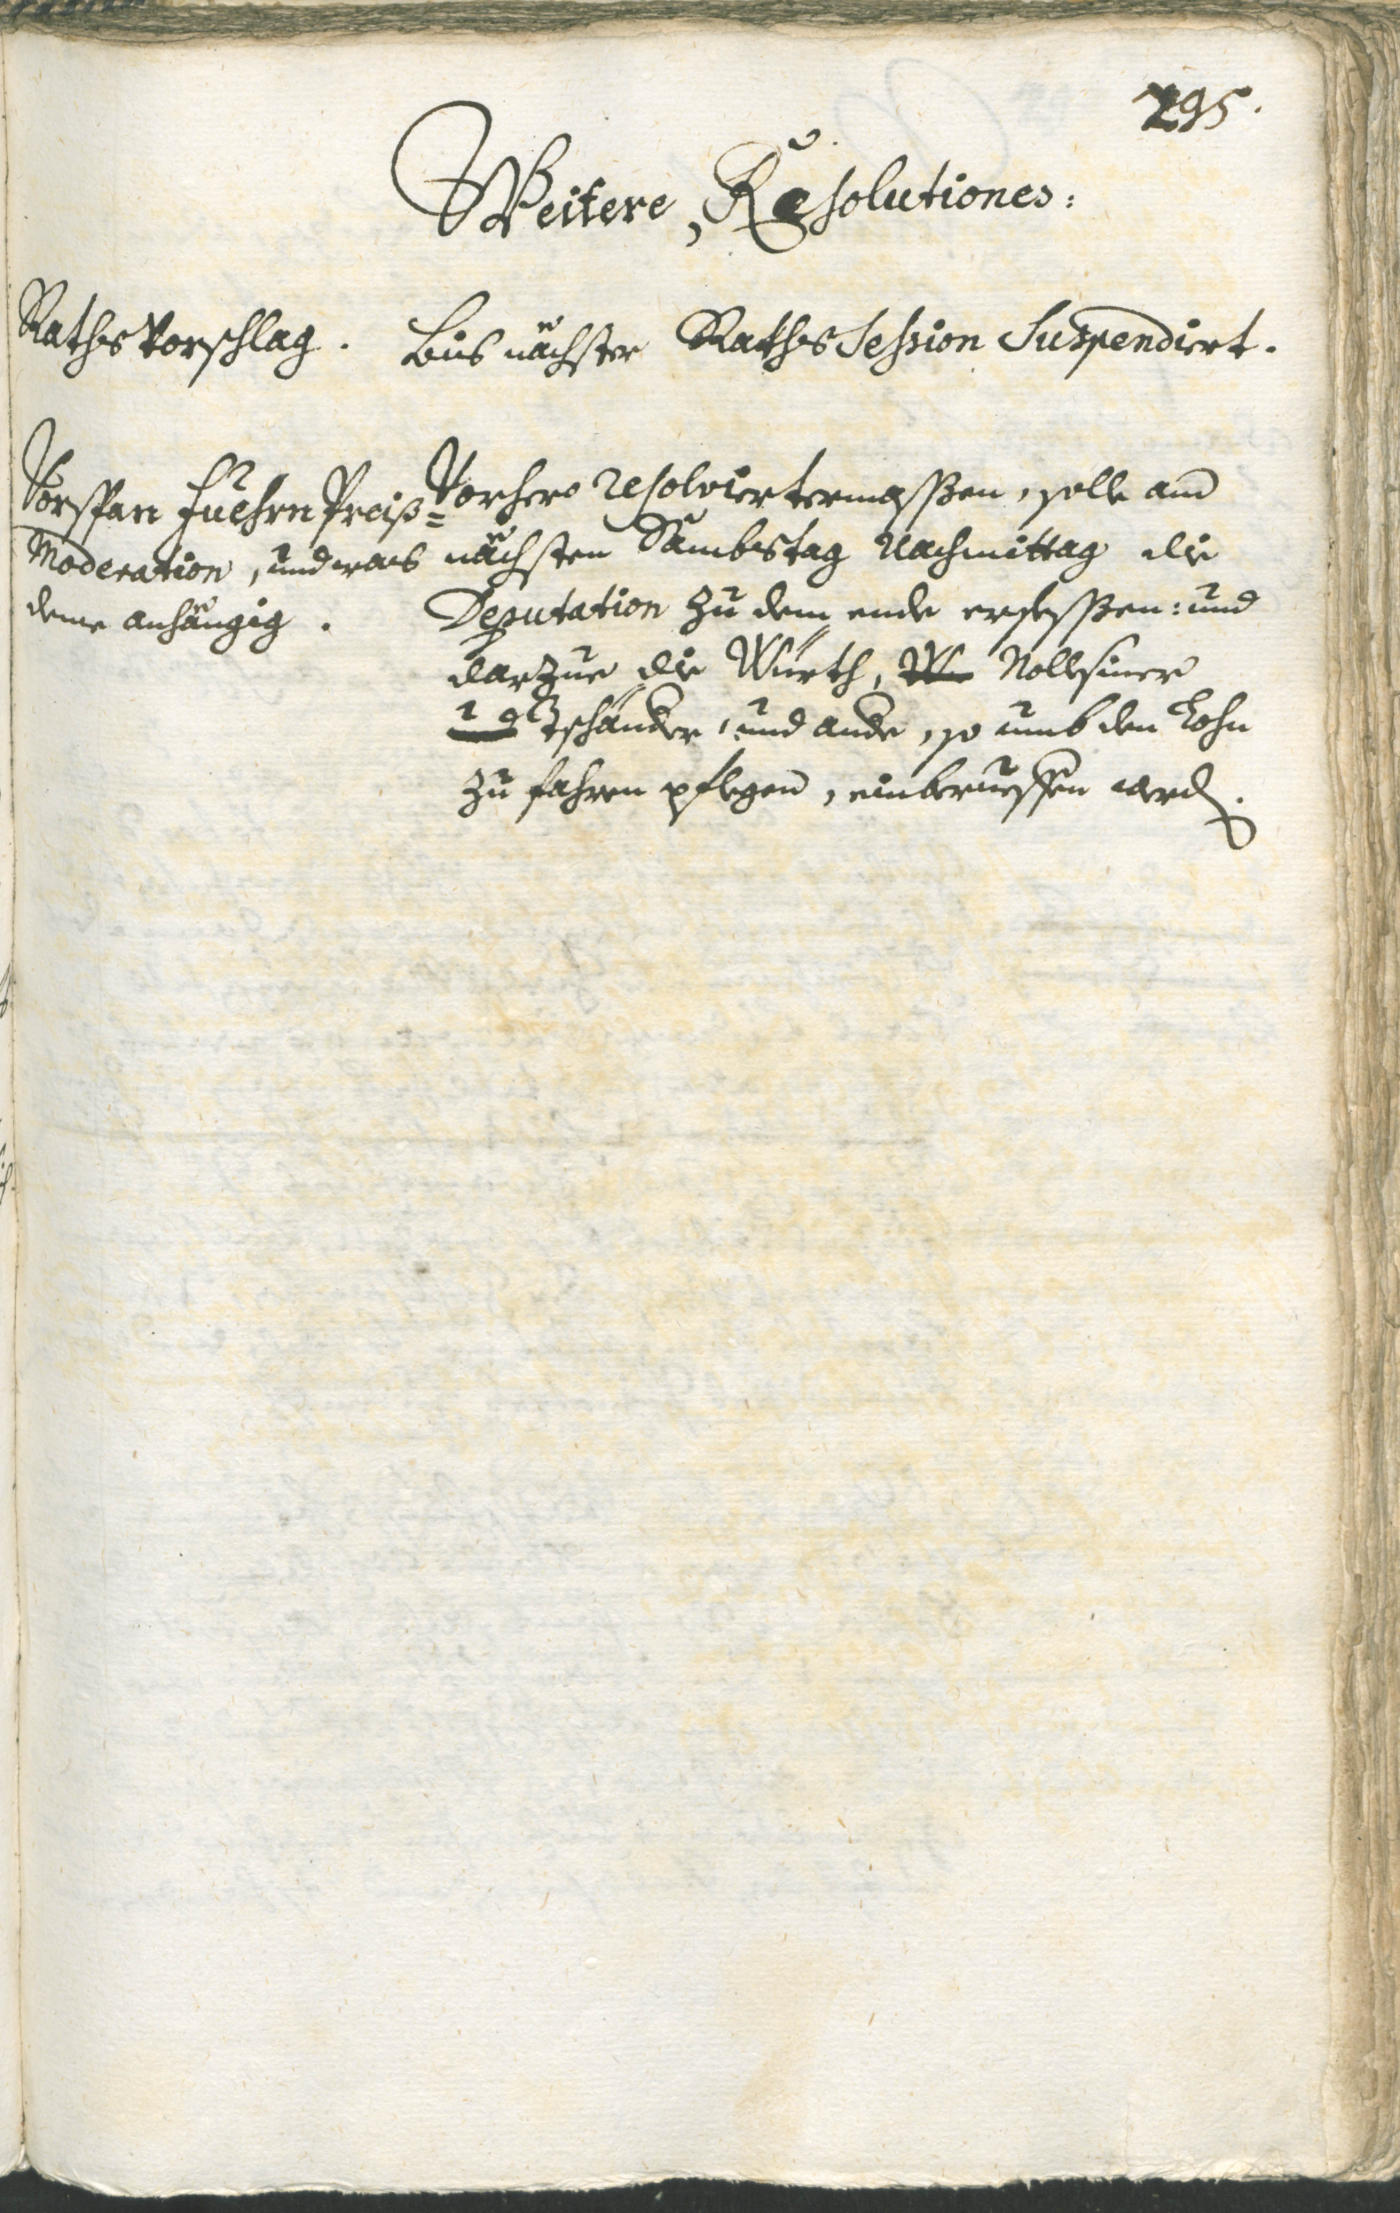 295.
Weitere Resolutiones:
Raths Vorschlag.
Bis nächster Raths Session Suspendiert.
Vorspan Fuehrn Preiß=
Moderation, und was
deme anhängig.
Vorhero resolviertermassßen, solle am
nächsten Sambstag Nachmittag die
Deputation zu dem ende ersessßen: und
darzue die Würth,
und, und ande, so umb den Lohn
zu fahren pflegen, einberueffen werd.